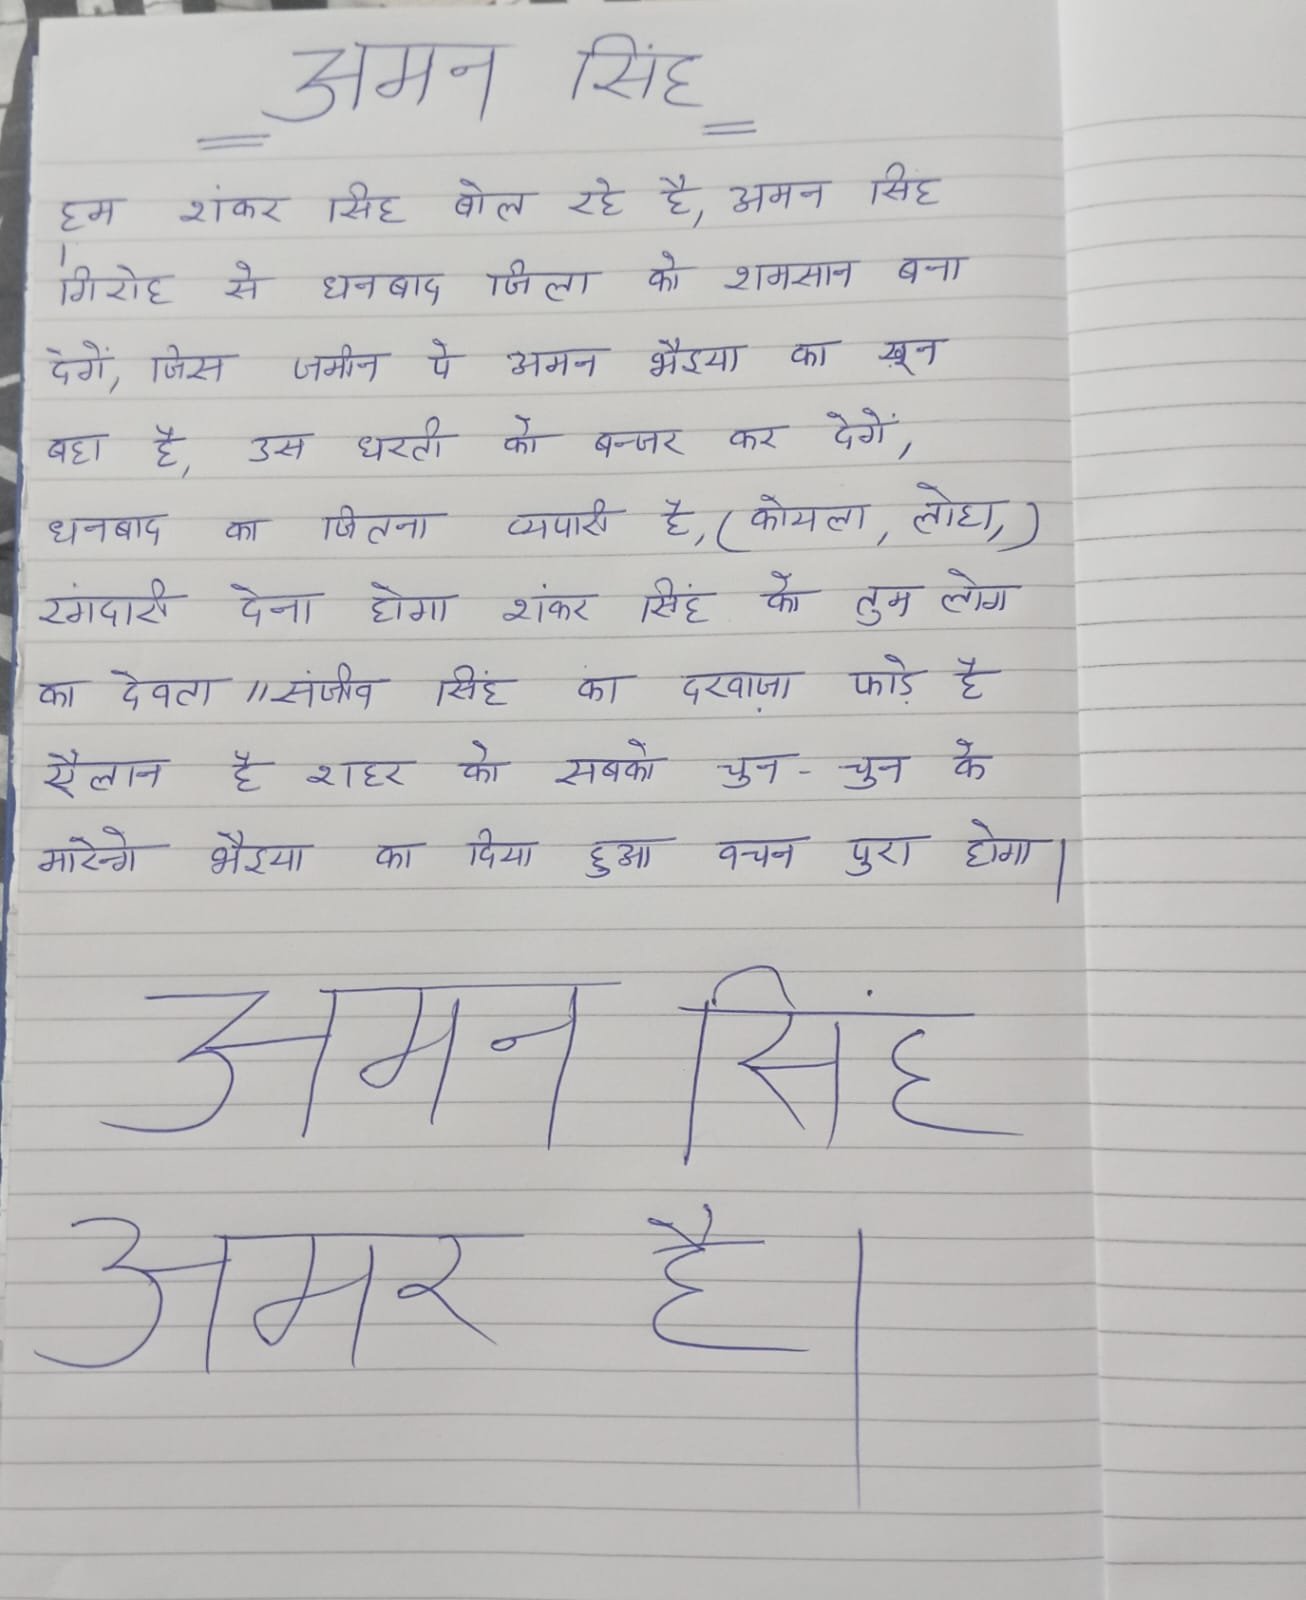 अमन सिंह
हम शंकर सिंह बोल रहे है, अमन सिंह
गिरोह से धनबाद जिला को शमसान बना
देगें, जिस जमीन पे अमन भैइया का खून
बहा है, उस धरती को बन्जर कर देगें,
धनबाद का जितना व्यपारी है, (कोयला, लोहा,)
रंगदारी देना होगा शंकर सिंह को तुम लोग
का देवता //संजीव सिंह का दरवाज़ा फाड़े है
ऐलान है शहर को सबको चुन-चुन के
मारेन्गे भैइया का दिया हुआ वचन पुरा होगा|
अमन सिंह
अमर है|